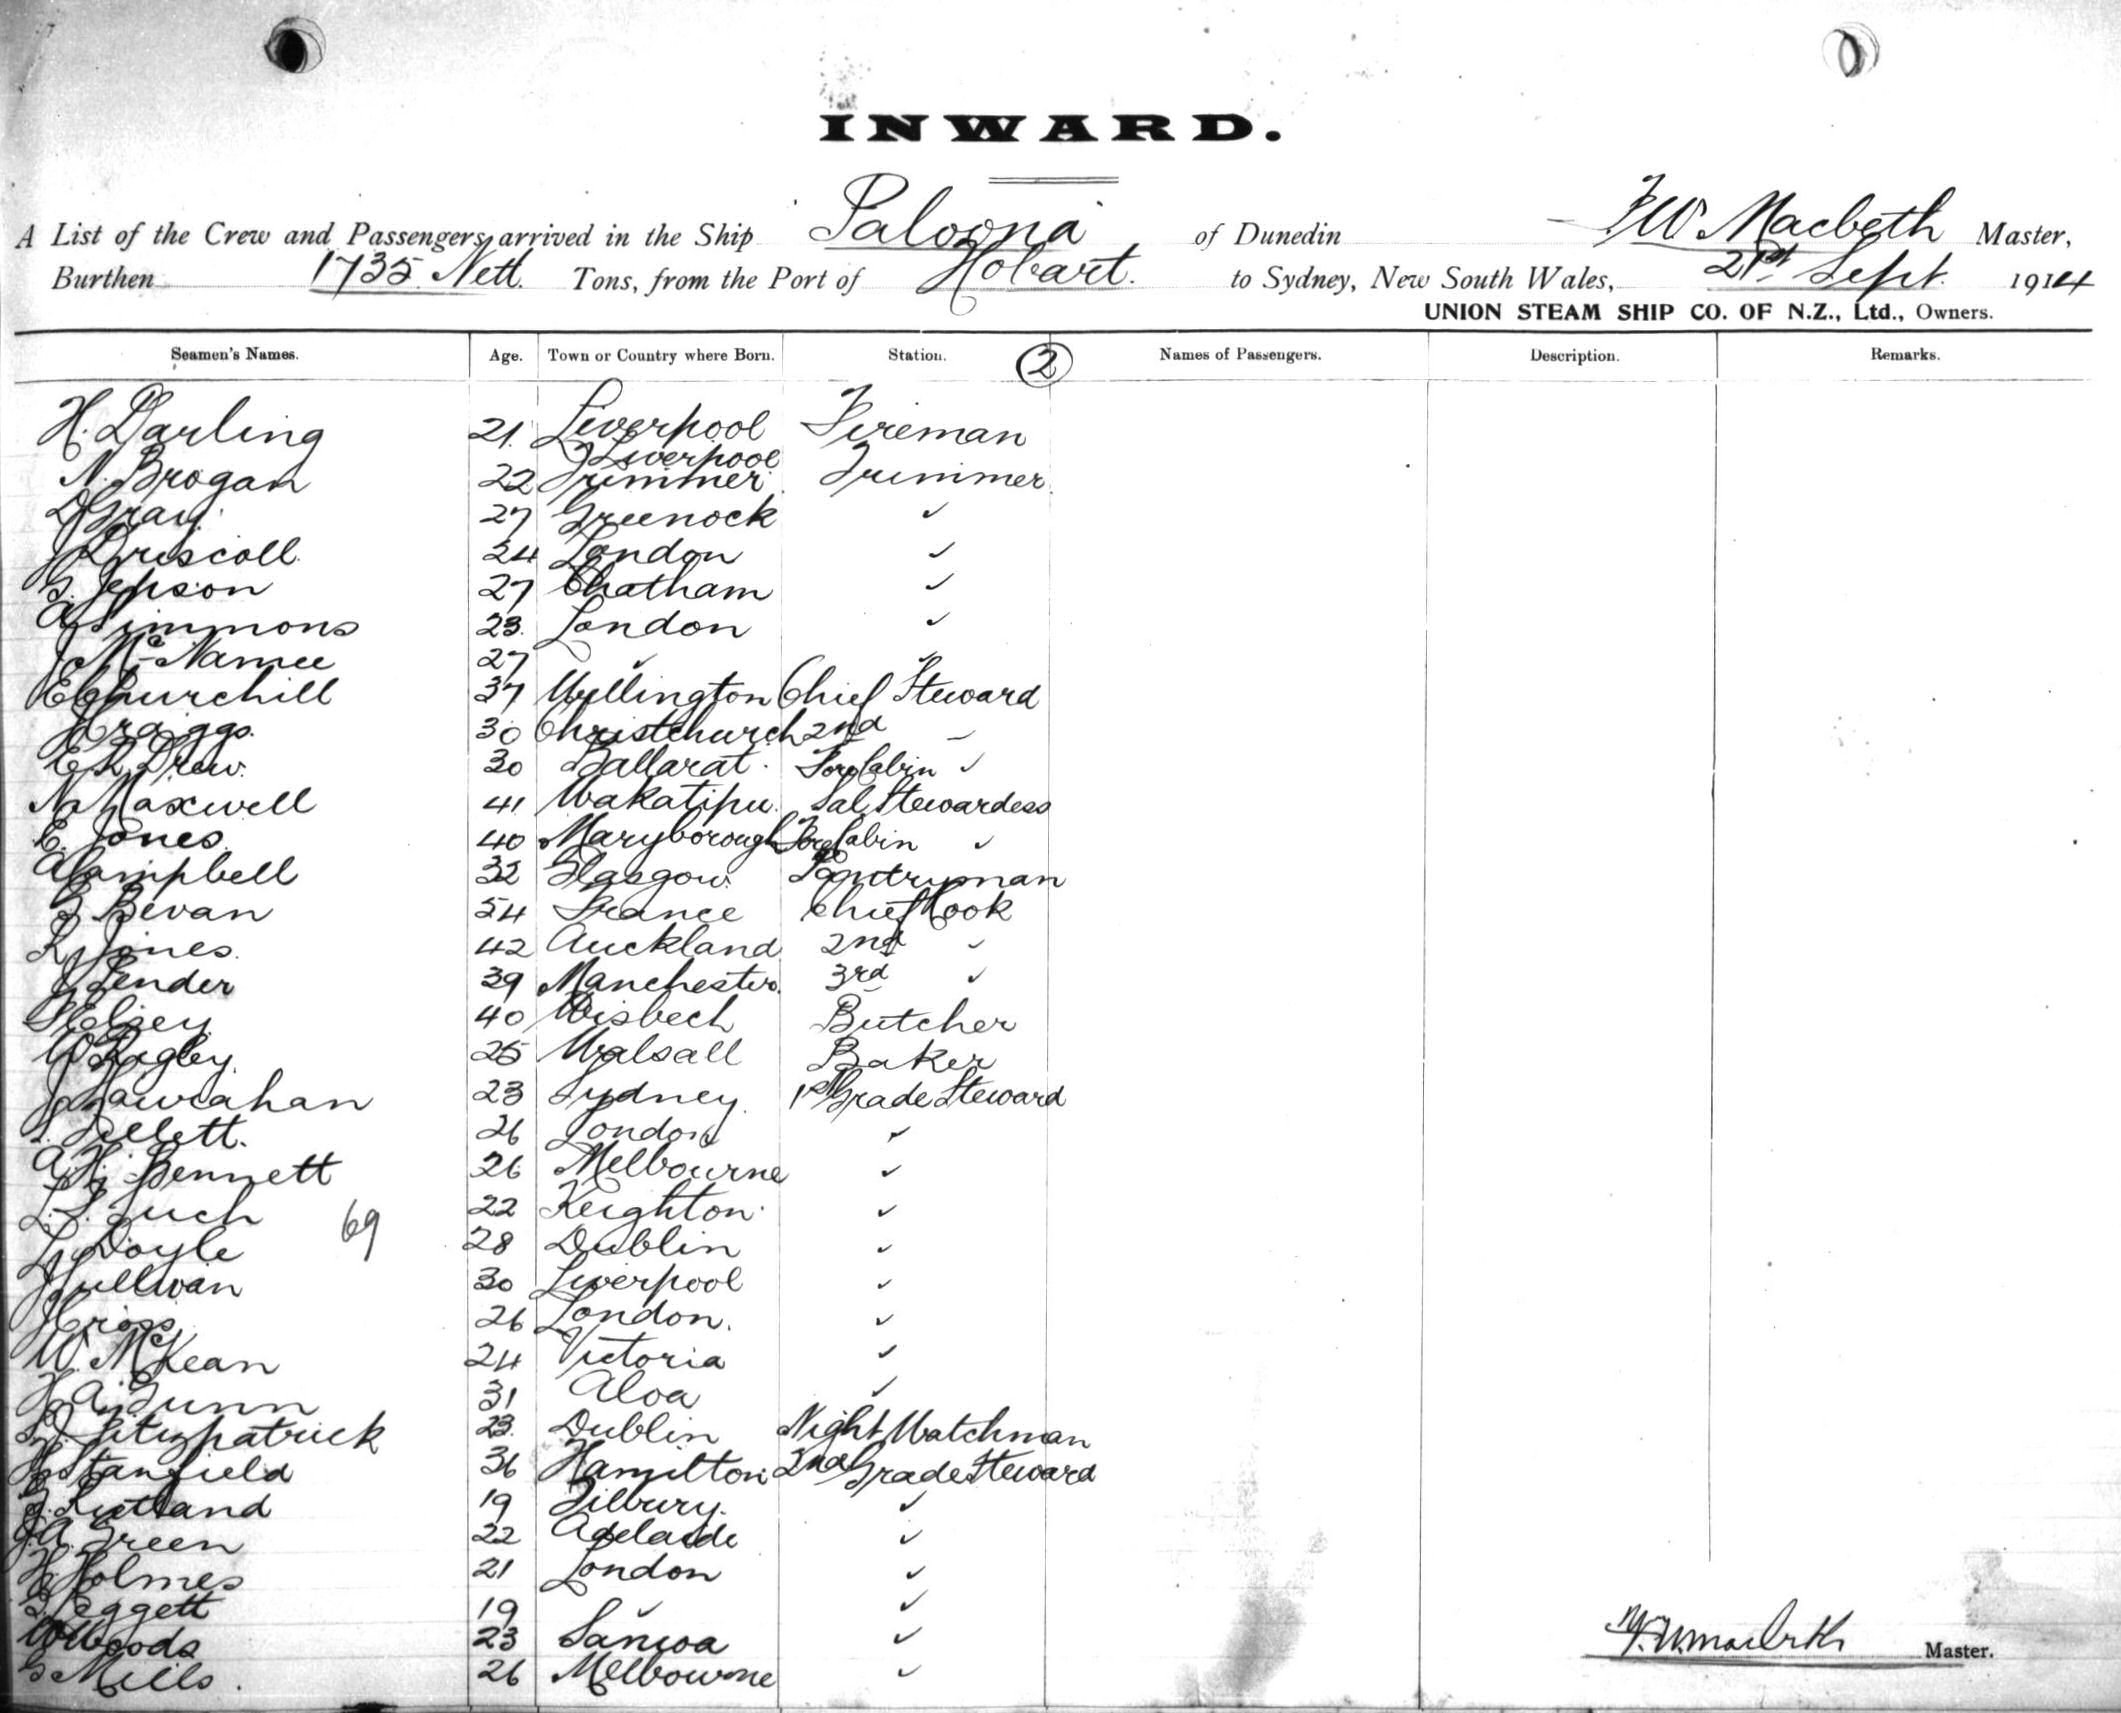 INWARD.
A List of the Crew and Passengers arrived in the Ship "Paloona" of Dunedin F W Macbeth Master,
Burthen 1735 Nett. Tons, from the Port of Hobart. to Sydney, New South Wales, 21st Sept. 1914
UNION STEAM SHIP CO. OF N.Z., Ltd., Owners.
Seamen's Names. Age. Town or Country where Born. Station. 2 Names of Passengers. Description. Remarks.
H. Darling 21. Liverpool Fireman
Liverpool
N. Brogan 22 Trimmer Trimmer
D Gray 27 Greenock ✓
J Driscoll 24 London ✓
G. Jepson 27 Chatham ✓
A Simmons 23. London ✓
J McNamee 27 ✓ ✓
E Churchill 37 Wellington Chief Steward
H Craiggs. 30 Christchurch 2nd ✓
E R Drew. 30 Ballarat Fore Cabin ✓
N. Maxwell 41 Wakatipu. Sal Stewardess
E. Jones 40 Maryborough Fore Cabin ✓
A Campbell 32 Glasgow. Pantryman
G Bevan 54 France Chief Cook
L Jones. 42 Auckland 2nd ✓
J Pender 39 Manchester. 3rd ✓
Kelsey 40 Wisbech Butcher
W Bagley. 25 Walsall Baker
J Hawrahan 23 Sydney. 1st Grade Steward
Tillett. 26 London ✓
A. H. Bennett 26 Melbourne ✓
L. S. Such 69 22 Keighton ✓
L Doyle 28 Dublin ✓
J Sullivan 30 Liverpool ✓
J Cross 26 London. ✓
W. McKean 24 Victoria ✓
H A. Gunn 31 Aloa ✓
Fitzpatrick 23. Dublin Night Watchman
H Stanfield 36 Hamilton 2nd Grade Steward
G. Rutland 19 Tilbury. ✓
J. A. Green 22 Adelaide ✓
H Holmes 21 London ✓
Leggett 19 ✓ ✓
W Woods 23 Samoa ✓
G Mills. 26 Melbourne ✓
F. W. Macbeth Master.